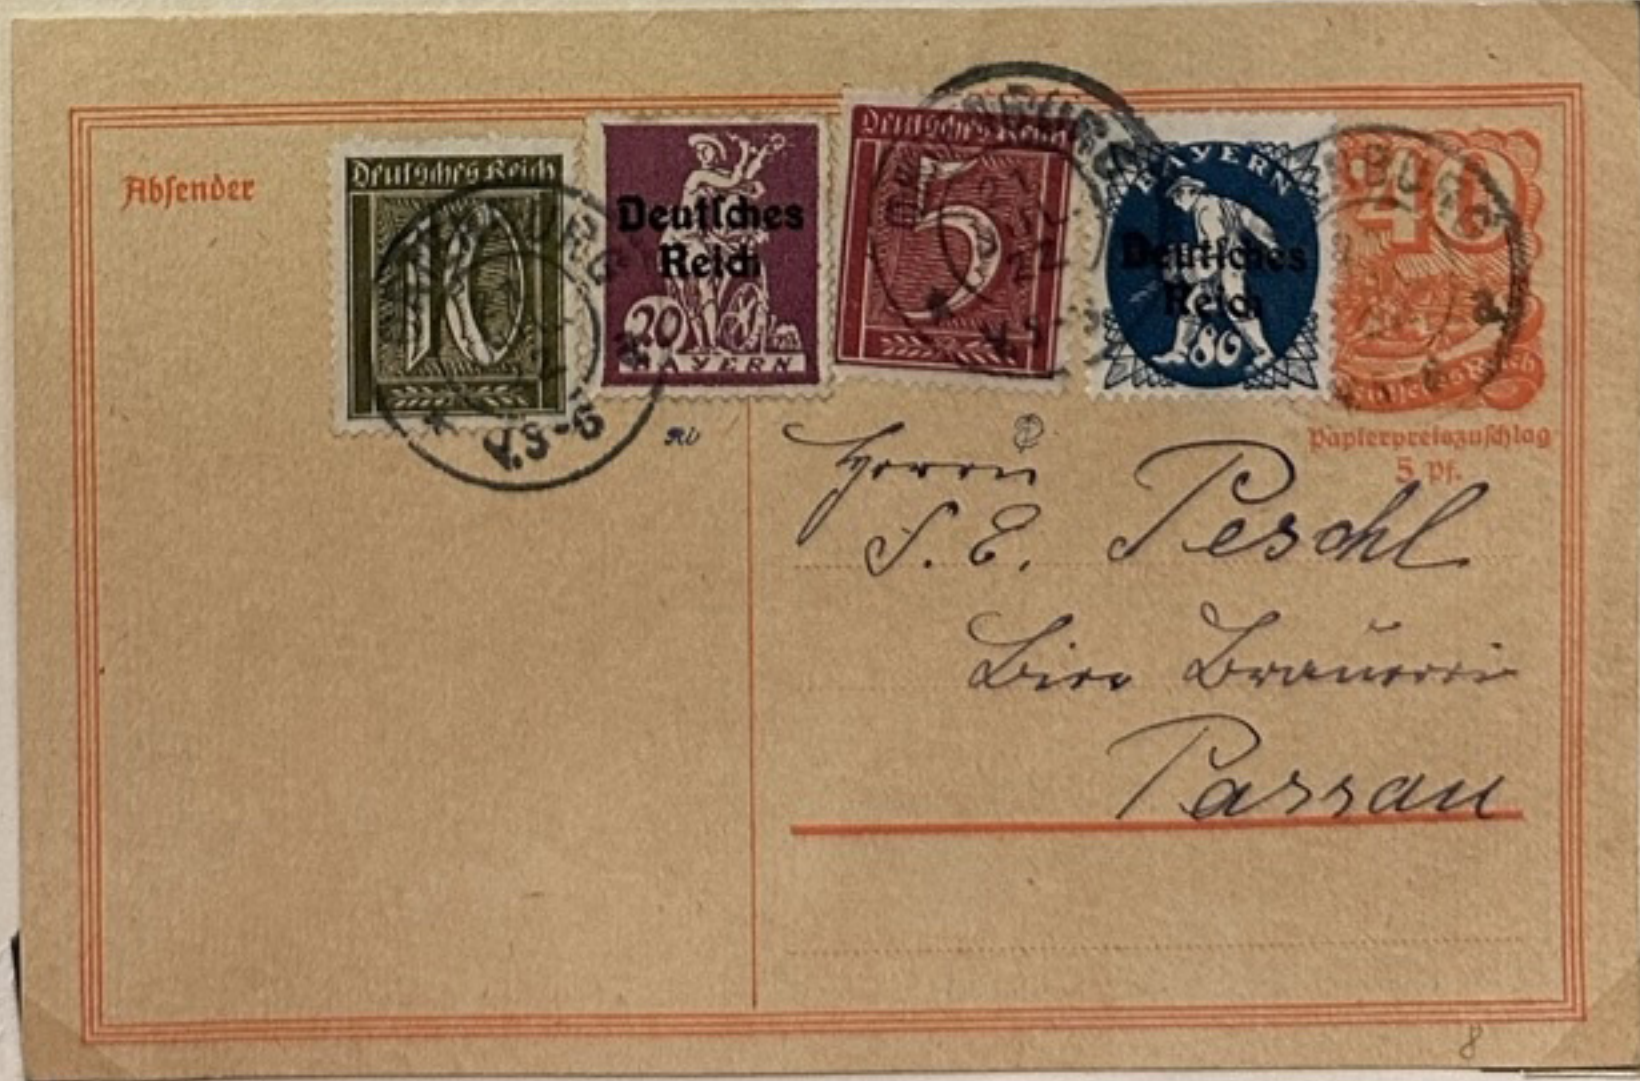 Absender
Deutsches Reich
10
Deutsches
Reich
20
BAYERN
Deutsches Reich
5
BAYERN
Deutsches
Reich
80
40
Deutsches Reich
V.5-6
Papierpreiszuschlag
5 Pf.
Herrn
S. E. Peschl
Bier Brauerei
Passau
8